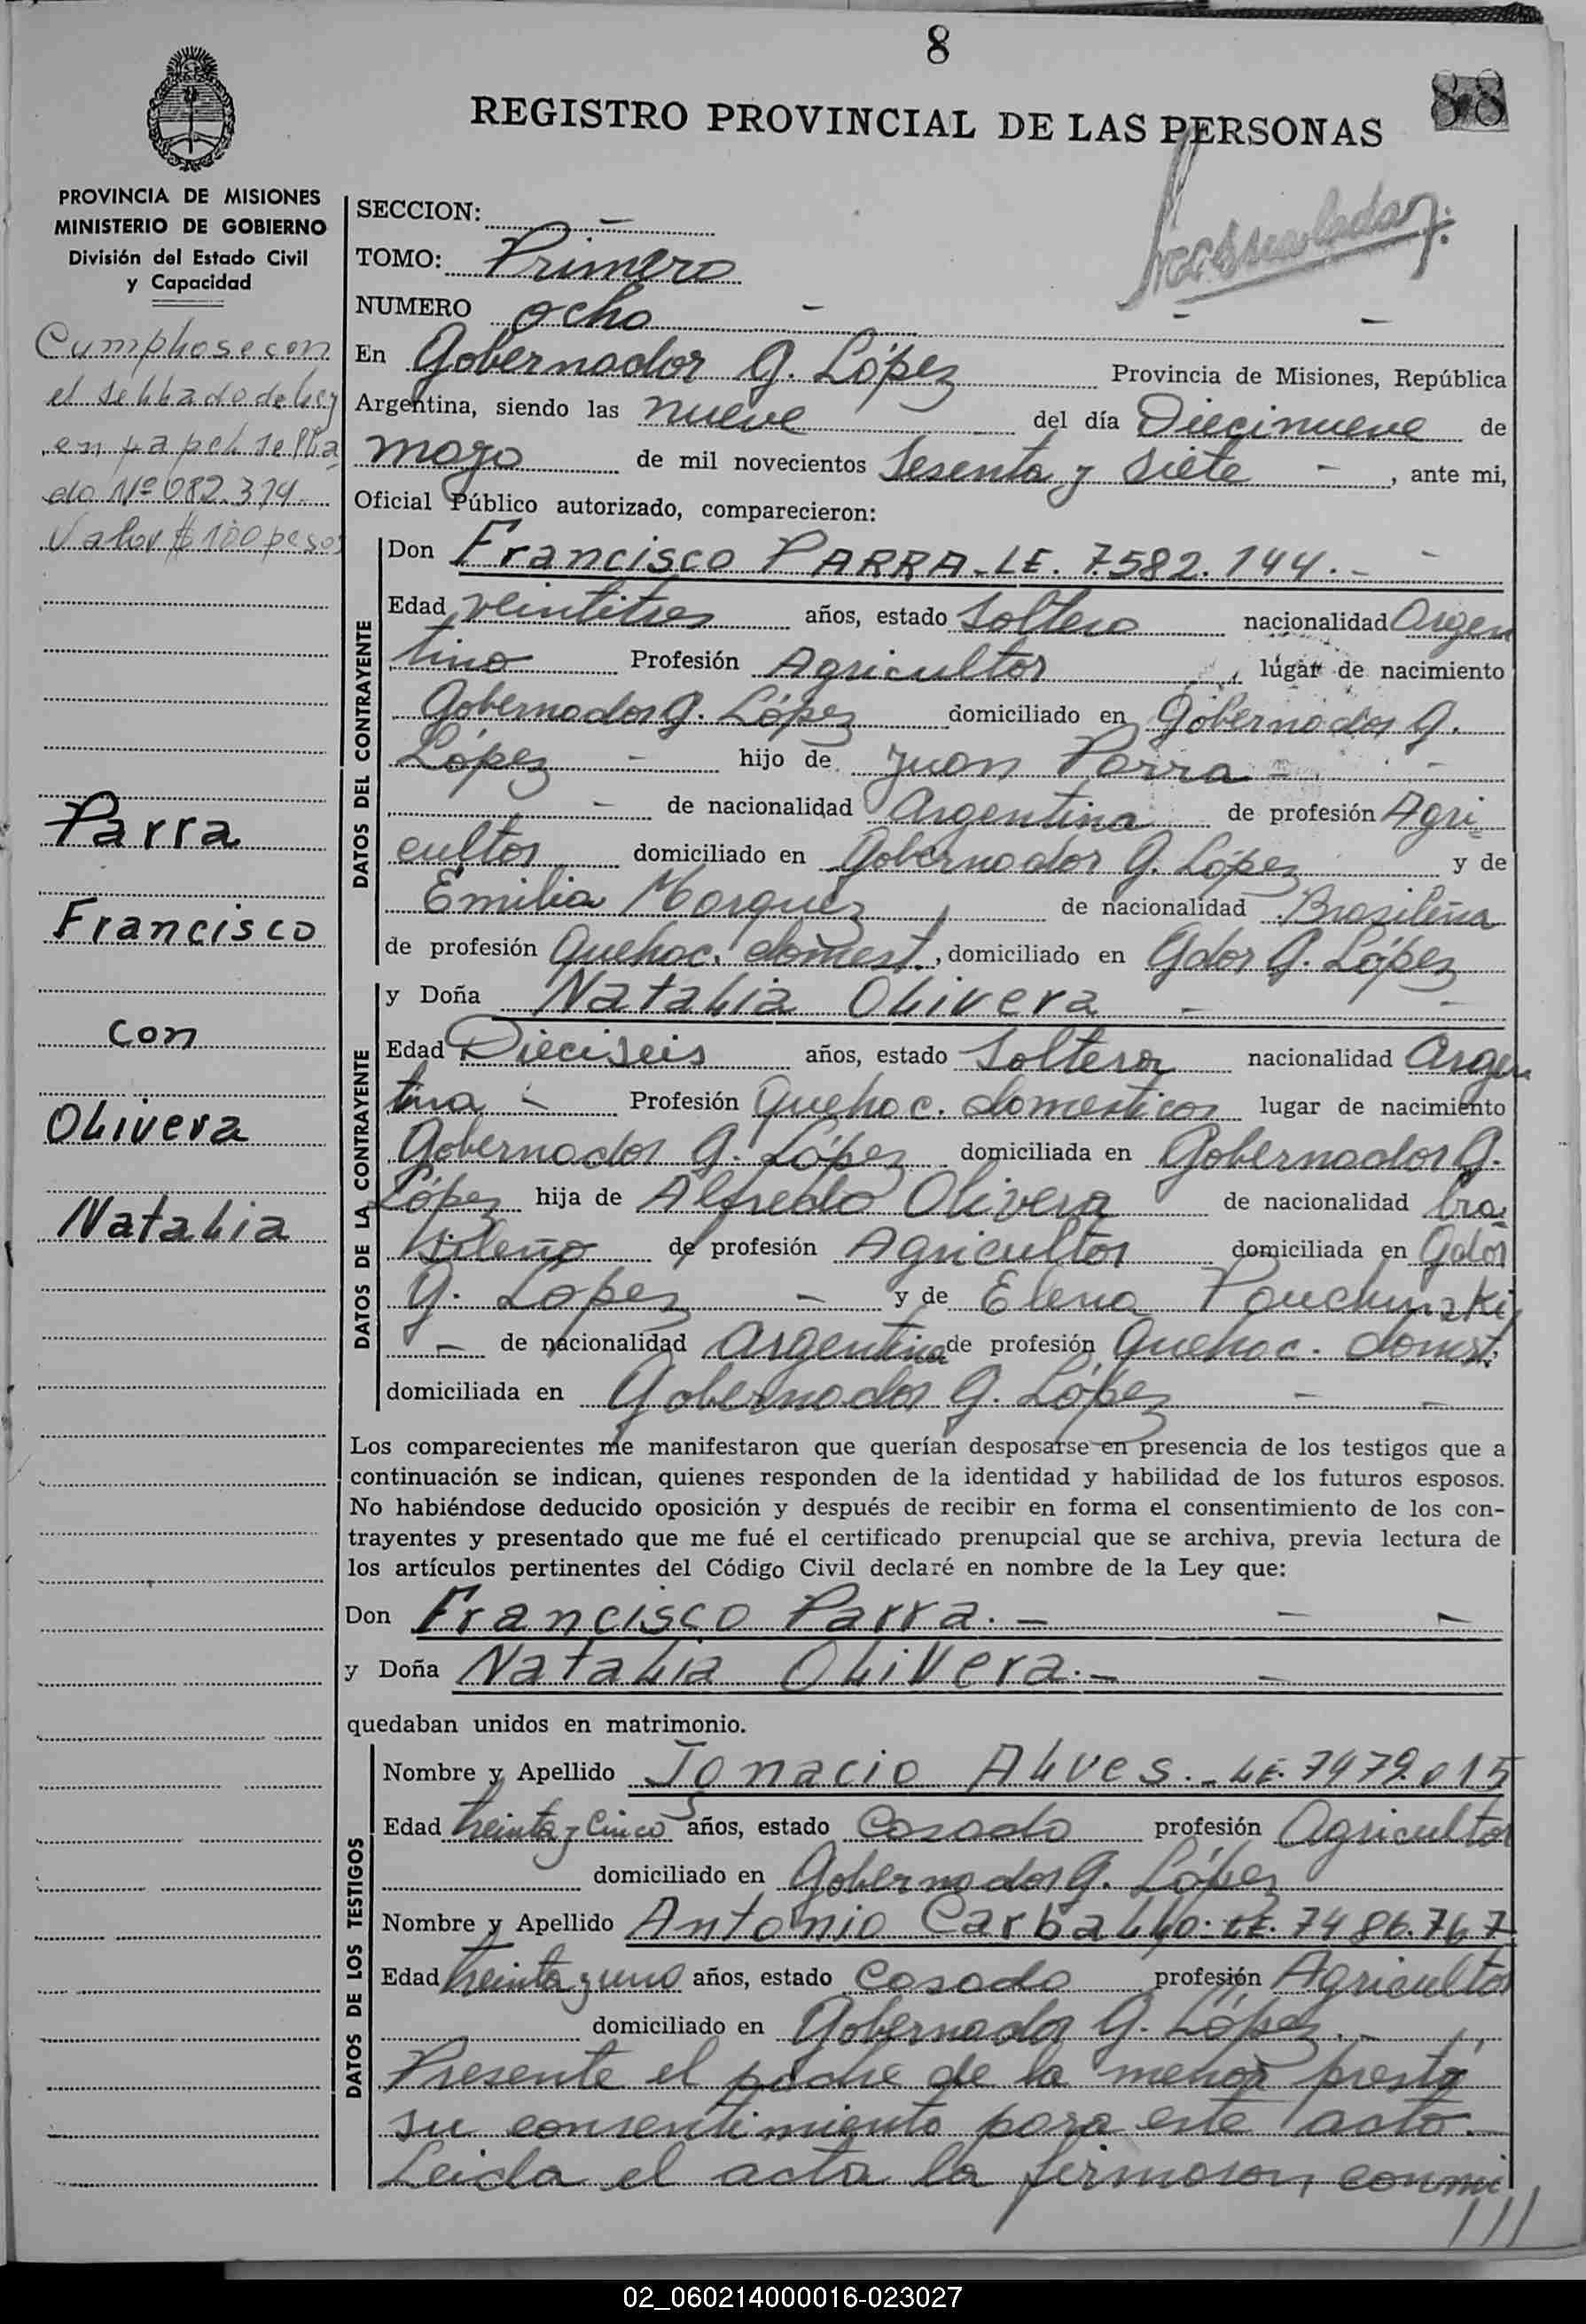 8
88
REGISTRO PROVINCIAL DE LAS PERSONAS
PROVINCIA DE MISIONES
MINISTERIO DE GOBIERNO
División del Estado Civil
y Capacidad
Cumphose con
el sellado de ley
en papel sella
do Nº 082.314
Valor $ 100 pesos
Parra
Francisco
con
Olivera
Natalia
SECCION: —
TOMO: Primero
NUMERO ocho — — —
En Gobernador G. López Provincia de Misiones, República
Argentina, siendo las nueve del día Diecinueve de
mayo de mil novecientos Sesenta y siete — , ante mi,
Oficial Público autorizado, comparecieron:
DATOS DEL CONTRAYENTE
Don Francisco PARRA - LE. 7.582.144. — —
Edad veintitres años, estado Soltero nacionalidad Argen
tino Profesión Agricultor lugar de nacimiento
Gobernador G. López domiciliado en Gobernador G.
López — hijo de Juan Parra — —
— de nacionalidad Argentina de profesión Agri
cultor domiciliado en Gobernador G. López y de
Emilia Marquez, de nacionalidad Brasileña
de profesión Quehac. domest., domiciliado en Gdor G. López
DATOS DE LA CONTRAYENTE
y Doña Natalia Olivera — —
Edad Dieciseis años, estado Soltera nacionalidad Argen
tina — Profesión Quehac. domesticos lugar de nacimiento
Gobernador G. López domiciliada en Gobernador G.
López hija de Alfredo Olivera de nacionalidad bra
sileño de profesión Agricultor domiciliada en Gdor
G. Lopez — y de Elena
— de nacionalidad Argentina de profesión Quehac. domst.
domiciliada en Gobernador G. López — —
Los comparecientes me manifestaron que querían desposarse en presencia de los testigos que a
continuación se indican, quienes responden de la identidad y habilidad de los futuros esposos.
No habiéndose deducido oposición y después de recibir en forma el consentimiento de los con-
trayentes y presentado que me fué el certificado prenupcial que se archiva, previa lectura de
los artículos pertinentes del Código Civil declaré en nombre de la Ley que:
Don Francisco Parra. — — —
y Doña Natalia Olivera. — —
quedaban unidos en matrimonio.
DATOS DE LOS TESTIGOS
Nombre y Apellido Ignacio Alves. - LE. 7479.015
Edad treinta y cinco años, estado Casado profesión Agricultor
domiciliado en Gobernador G. López
Nombre y Apellido Antonio Carballo. LE. 7486.767
Edad treinta y uno años, estado Casado profesión Agricultor
domiciliado en Gobernador G. López. —
Presente el padre de la menor prestó
su consentimiento para este acto. —
Leida el acta la firmaron, con mi
///
02_060214000016-023027